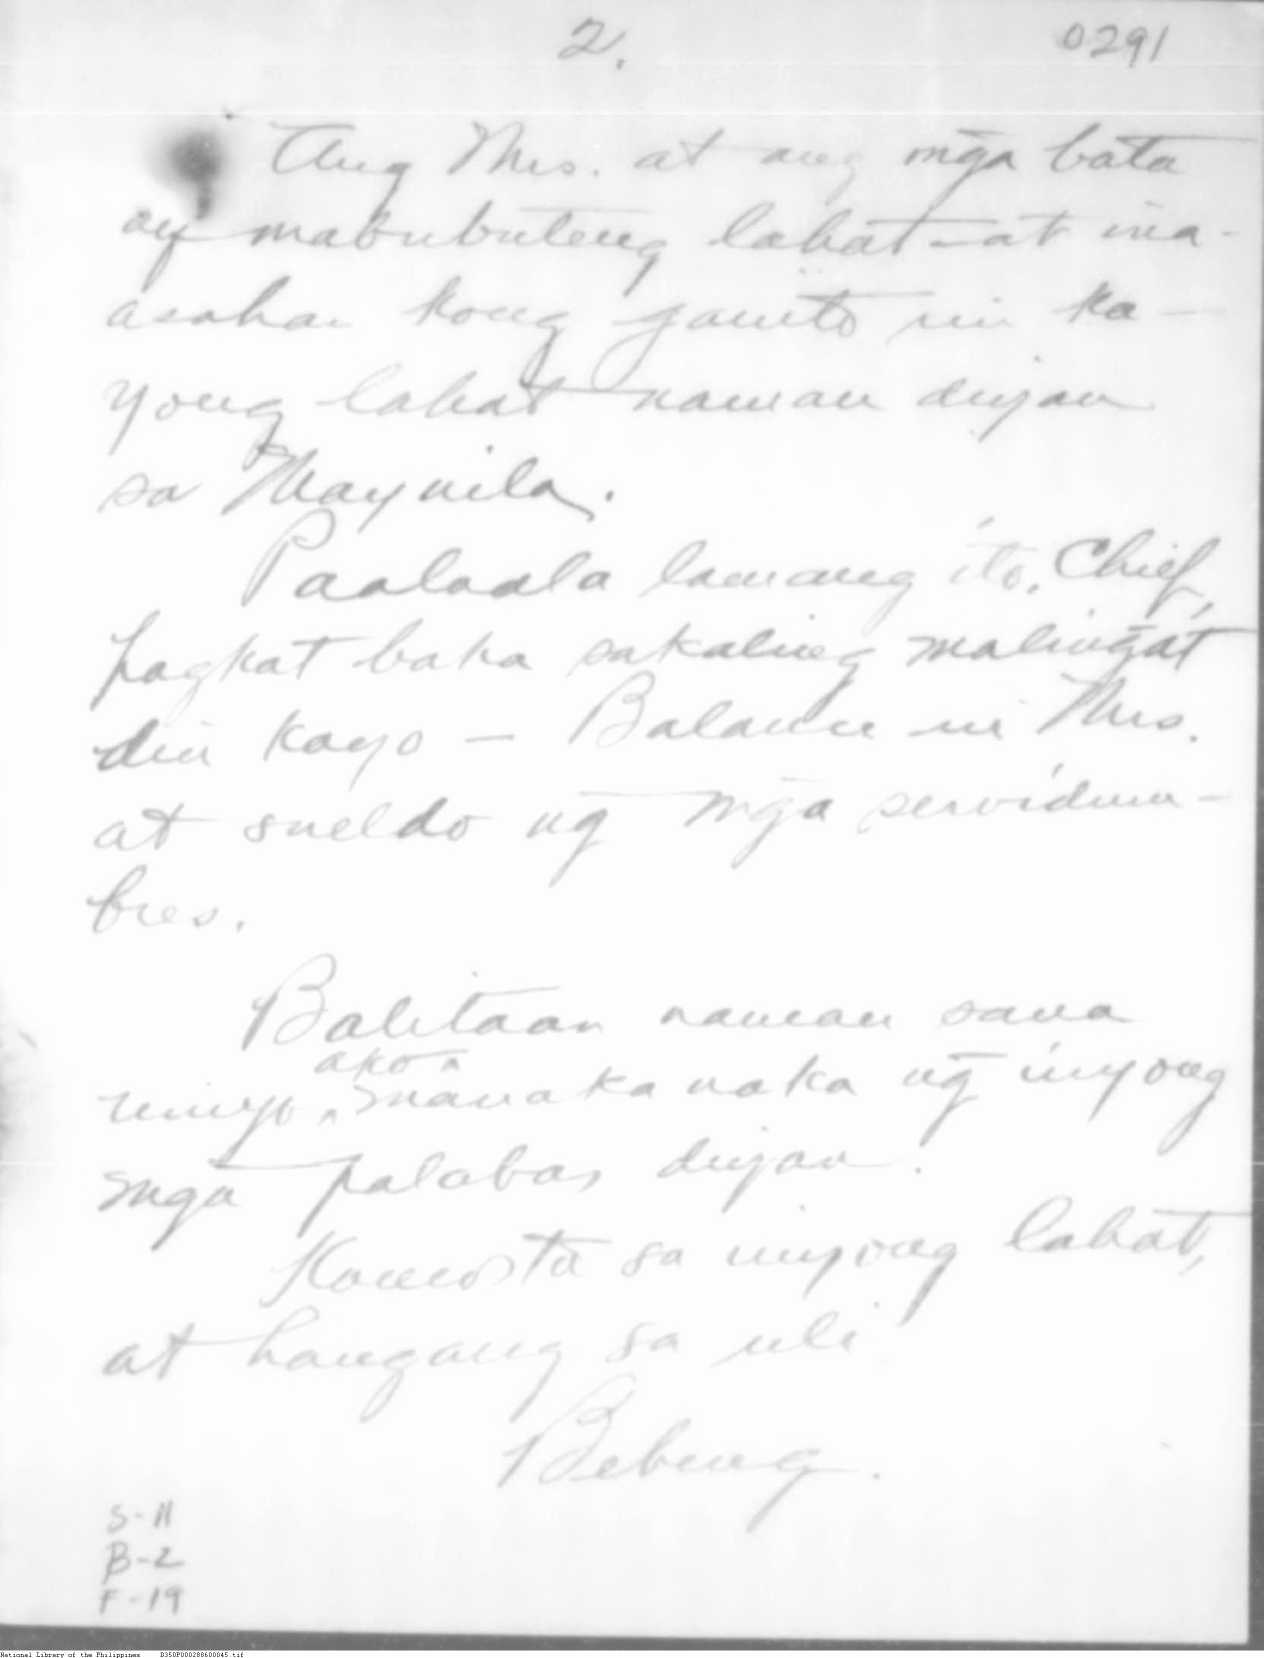 2.
0291
Ang Mrs. at ang mga bata
ay mabubuteng lahat - at ina-
asahan kong ganito rin ka-
yong lahat naman diyan
sa Maynila.
Paalaala lamang ito, Chief,
pagkat baka sakaling malingat
din kayo — Balance ni Mrs.
at sueldo ng mga servidum-
bres.
Balitaan naman sana
ako
ninyo ^ manakanaka ng inyong
mga palabas diyan.
Kamosta sa inyong lahat,
at hangang sa uli
Bebeng.
S-11
B-2
F-19
National Library of the Philippines D350P000288600045.tif